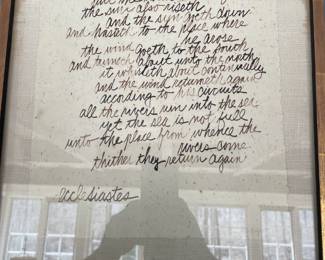 the sun also riseth
and the sun goeth down
and hasteth to the place where
he arose
the wind goeth to the south
and turneth about unto the north
it whirleth about continually
and the wind returneth again
according to his circuits
all the rivers run into the sea
yet the sea is not full
unto the place from whence the
rivers come
thither they return again
ecclesiastes